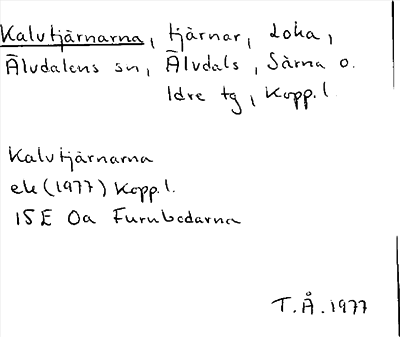 Kalvtjärnarna, tjärnar, Loka,
Älvdalens sn, Älvdals, Särna o.
Idre tg, Kopp. l.
Kalvtjärnarna
ek (1977) Kopp. l.
15E Oa Furubodarna
T.Å. 1977